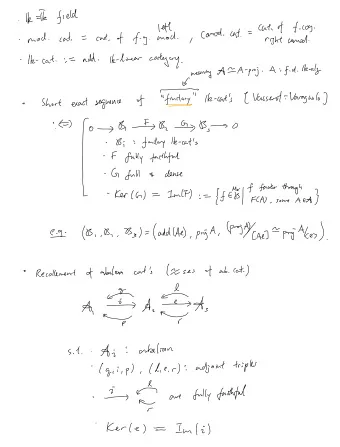 · 𝕜 = 𝕜̄ field
· mod. cat. = cat. of f.g. left mod., comod. cat. = cat. of f.cog. right comod.
· 𝕜-cat. := add. 𝕜-linear category.
meaning A ≃ A-proj. A: f.d. 𝕜-alg
· Short exact sequence of "finitary" 𝕜-cat's [Vasserot-Varagnolo]
:⇔ 0 → B₁ —F→ B₂ —G→ B₃ → 0
· Bᵢ : finitary 𝕜-cat's
· F fully faithful
· G full & dense
· Ker(G) = Im(F) := { f ∈ B | f factor through F(A), some A∈B }
e.g. (B₁, B₂, B₃) = (add(Ae), proj A, (proj A)/[Ae] ≃ proj A/(e)).
· Recollement of abelian cat's (≈ ses of ab. cat.)
A₁ A₂ A₃
q i p l e r
s.t. · Aᵢ : abelian
· (q,i,p), (l,e,r) : adjoint triples
· i, l, r are fully faithful
· Ker(e) = Im(i)